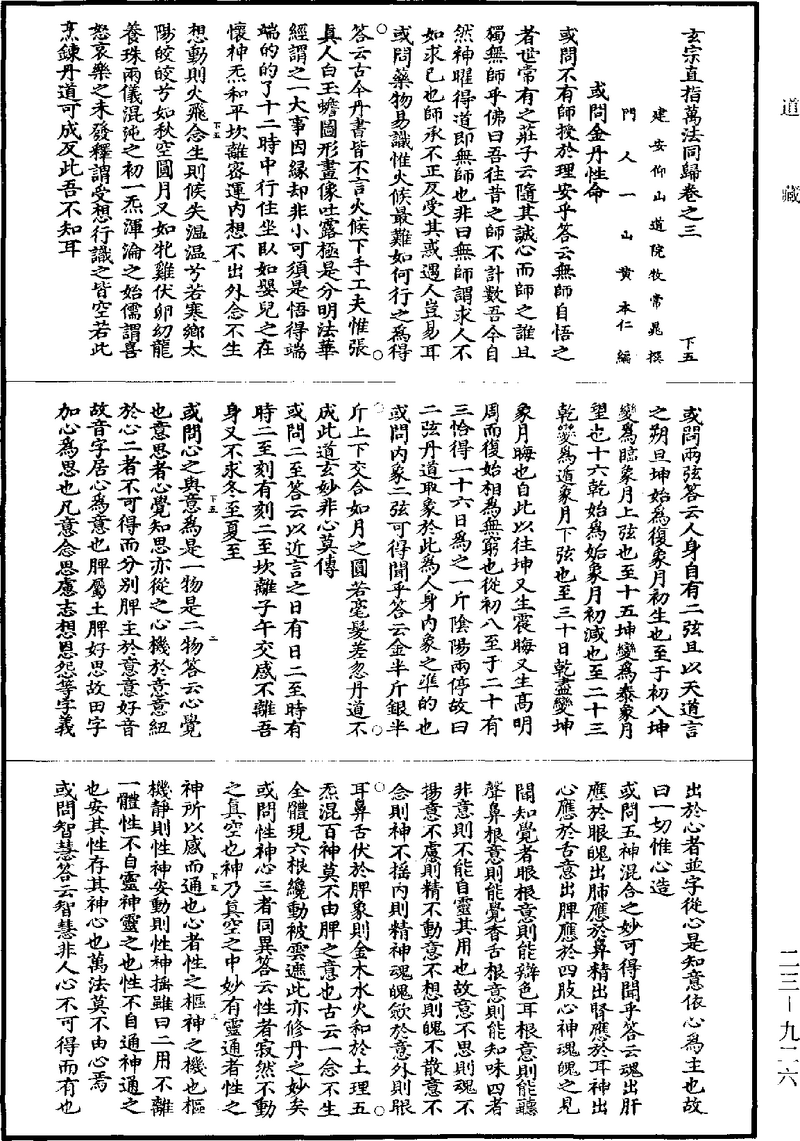 道藏
玄宗直指萬法同歸卷之三
下五
建安仰山道院牧常晁撰
門人一山黃本仁編
或問金丹性命
或問不有師授於理安乎答云無師自悟之
者世常有之莊子云隨其誠心而師之誰且
獨無師乎佛曰吾往昔之師不計數吾今自
然神曜得道即無師也非曰無師謂求人不
如求已也師承不正反受其惑遇人豈易耳
或問藥物易識惟火候最難如何行之爲得
答云古今丹書皆不言火候下手工夫惟張
真人白玉蟾圖形畫像吐露極是分明法華
經謂之一大事因緣却非小可須是悟得端
端的的了十二時中行住坐臥如嬰兒之在
懷神炁和平坎離密運内想不出外念不生
想動則火飛念生則候失温温兮若寒鄉太
陽皎皎兮如秋空圓月又如牝雞伏卵幼龍
養珠兩儀混沌之初一炁渾淪之始儒謂喜
怒哀樂之未發釋謂受想行識之皆空若此
烹鍊丹道可成反此吾不知耳
或問兩弦答云人身自有二弦且以天道言
之朔旦坤始爲復象月初生也至于初八坤
變爲臨象月上弦也至十五坤變爲泰象月
望也十六乾始爲姤象月初減也至二十三
乾變爲遁象月下弦也至三十日乾盡變坤
象月晦也自此以往坤又生震晦又生高明
周而復始相爲無窮也從初八至于二十有
三恰得一十六日爲之一斤陰陽兩停故曰
二弦丹道取象於此爲人身内象之準的也
或問内象二弦可得聞乎答云金半斤銀半
斤上下交合如月之圓若毫髮差忽丹道不
成此道玄妙非心莫傳
或問二至答云以近言之日有日二至時有
時二至刻有刻二至坎離子午交感不離吾
身又不求冬至夏至
下五
二
或問心之與意爲是一物是二物答云心覺
也意思者心覺知思亦從之心機於意意紐
於心二者不可得而分别脾主於意意好音
故音字居心爲意也脾屬土脾好思故田字
加心爲思也凡意念思慮志想恩怨等字義
出於心者並字從心是知意依心爲主也故
曰一切惟心造
或問五神混合之妙可得聞乎答云魂出肝
應於眼魄出肺應於鼻精出腎應於耳神出
心應於舌意出脾應於四肢心神魂魄之見
聞知覺者眼根意則能辯色耳根意則能聽
聲鼻根意則能覺香舌根意則能知味四者
非意則不能自靈其用也故意不思則魂不
揚意不慮則精不動意不想則魄不散意不
念則神不揺内則精神魂魄歛於意外則眼
耳鼻舌伏於脾象則金木水火和於土理五
炁混百神莫不由脾之意也古云一念不生
全體現六根纔動被雲遮此亦修丹之妙矣
或問性神心三者同異答云性者寂然不動
之真空也神乃真空之中妙有靈通者性之
下五
三
神所以感而通也心者性之樞神之機也樞
機靜則性神安動則性神揺雖曰二用不離
一體性不自靈神靈之也性不自通神通之
也安其性存其神心也萬法莫不由心焉
或問智慧答云智慧非人心不可得而有也
二三－九二六